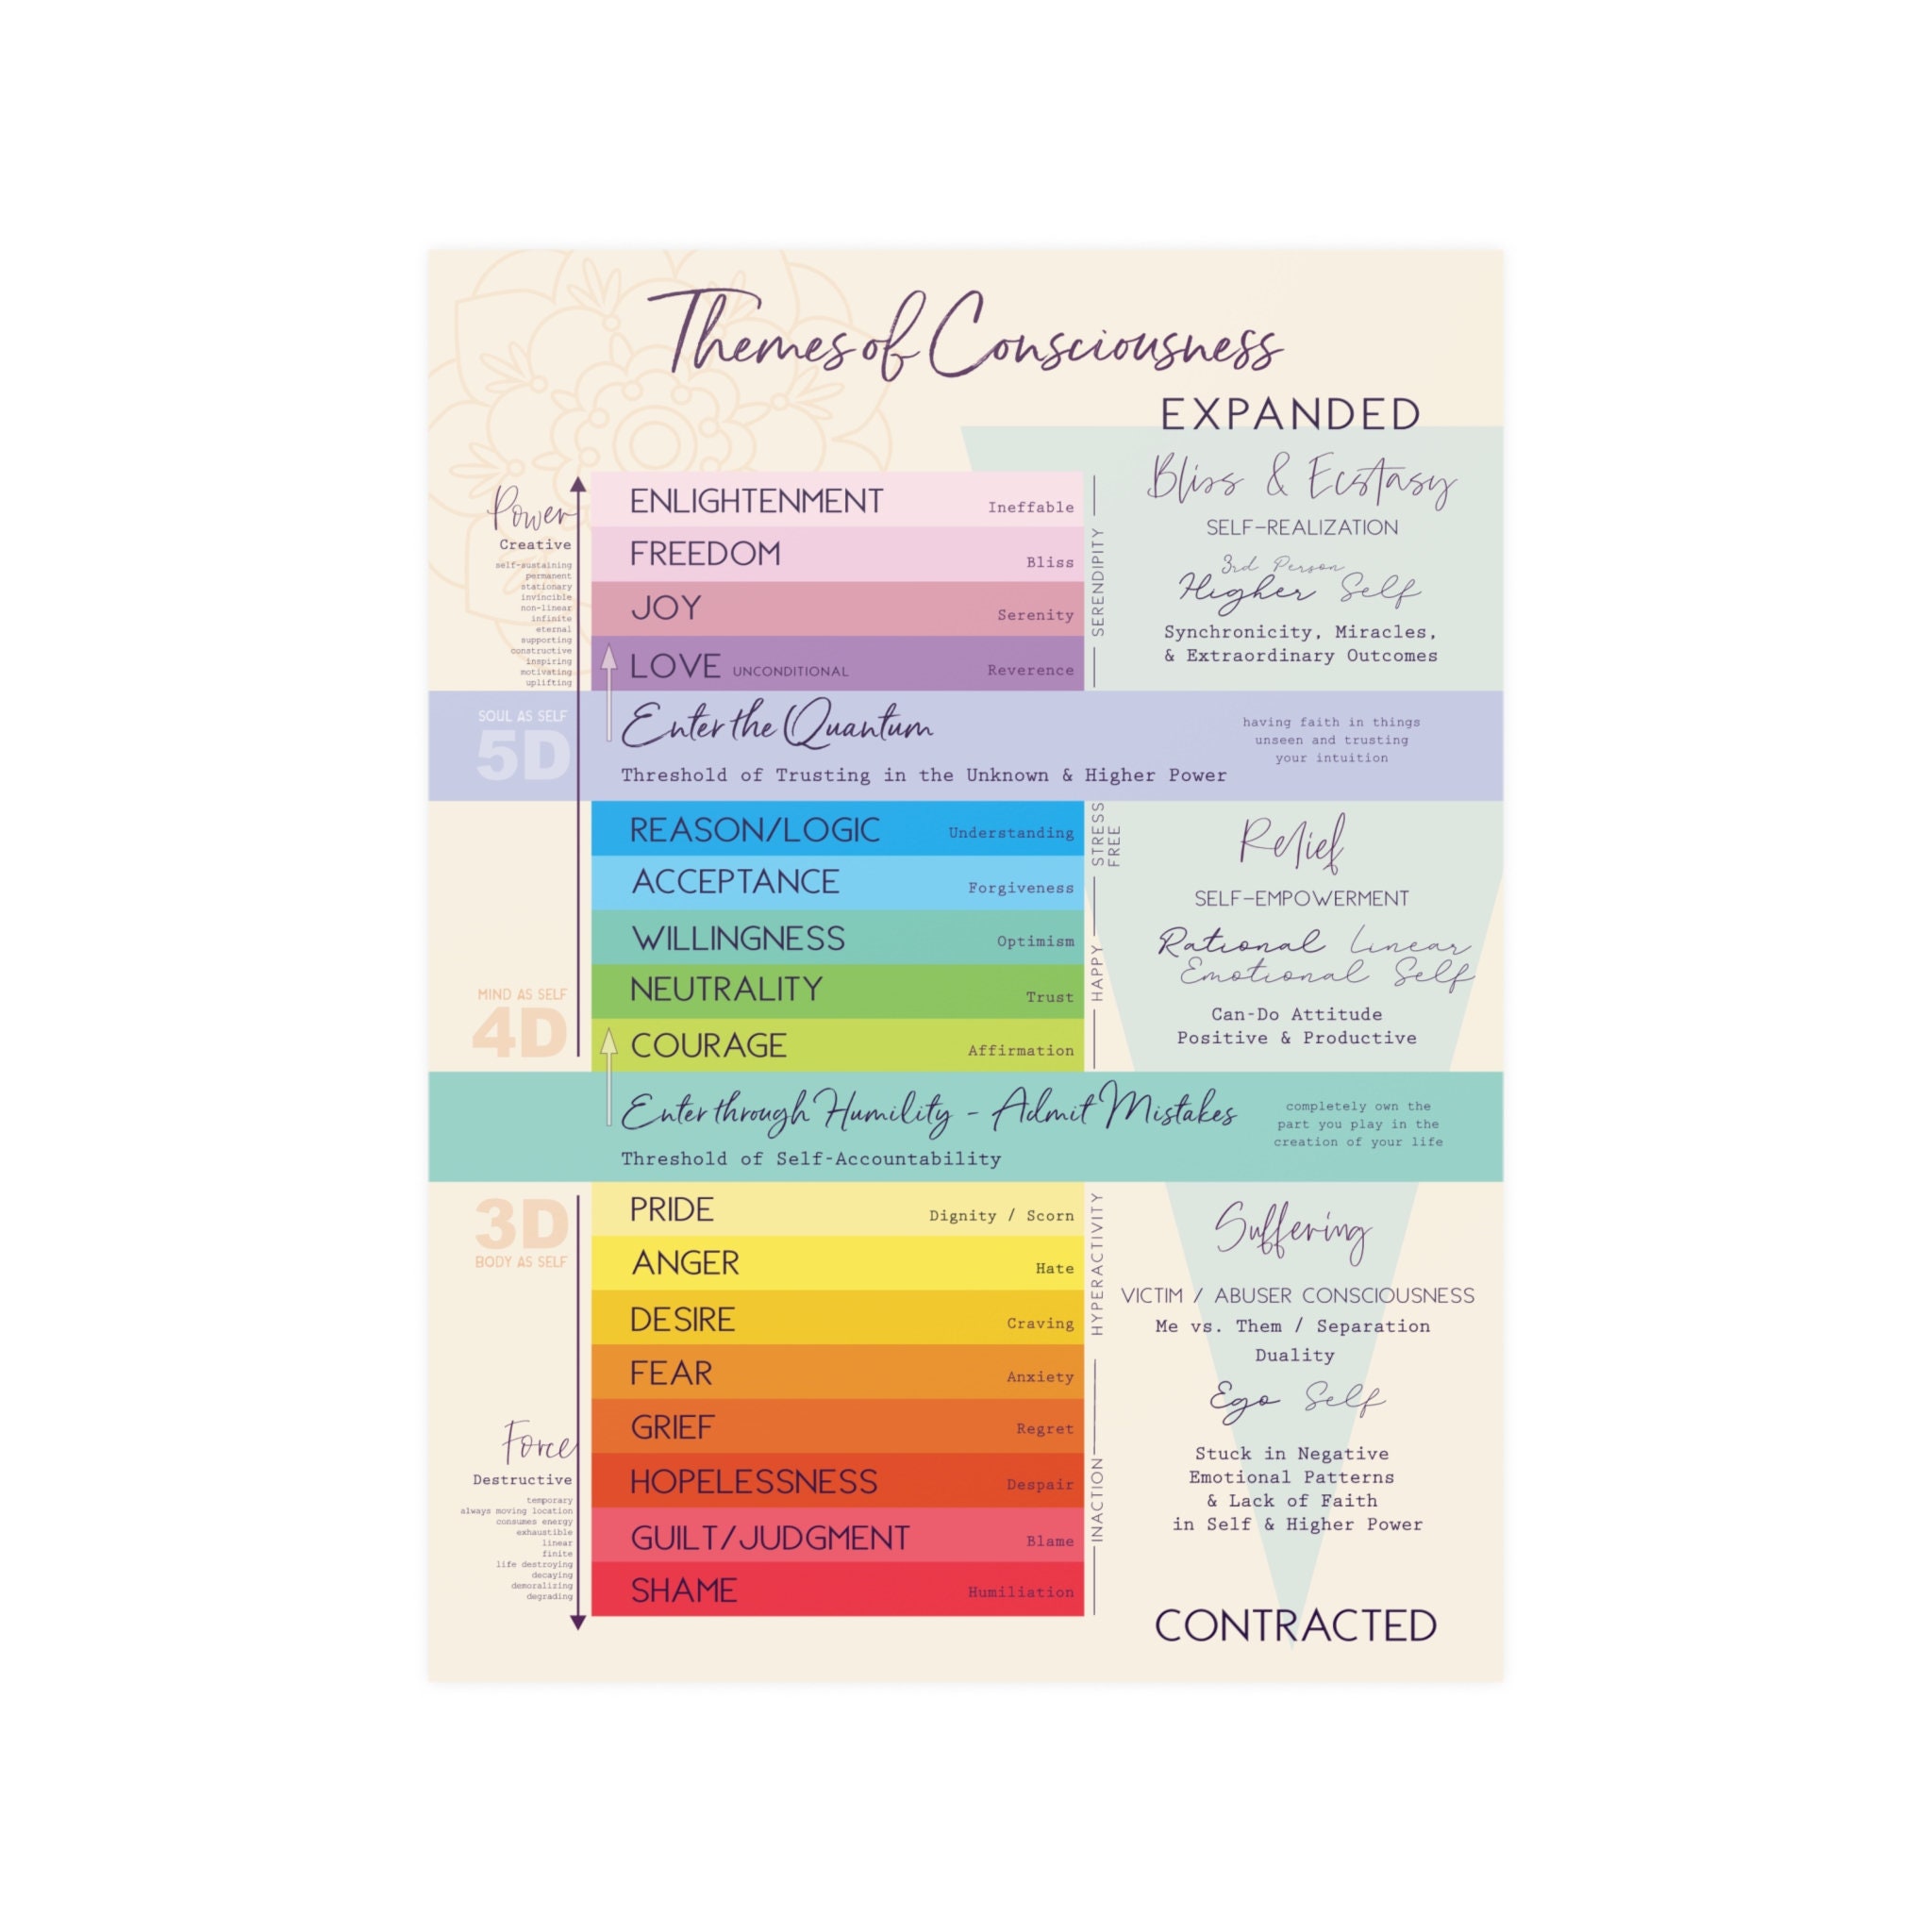 Themes of Consciousness
EXPANDED
Power
Creative
self-sustaining
permanent
stationary
invincible
non-linear
infinite
eternal
supporting
constructive
inspiring
motivating
uplifting
ENLIGHTENMENT Ineffable
FREEDOM Bliss
JOY Serenity
LOVE UNCONDITIONAL Reverence
SERENDIPITY
Bliss & Ecstasy
SELF-REALIZATION
3rd Person
Higher Self
Synchronicity, Miracles,
& Extraordinary Outcomes
SOUL AS SELF
5D
Enter the Quantum
Threshold of Trusting in the Unknown & Higher Power
having faith in things
unseen and trusting
your intuition
REASON/LOGIC Understanding
ACCEPTANCE Forgiveness
WILLINGNESS Optimism
NEUTRALITY Trust
COURAGE Affirmation
STRESS
FREE
HAPPY
MIND AS SELF
4D
Relief
SELF-EMPOWERMENT
Rational Linear
Emotional Self
Can-Do Attitude
Positive & Productive
Enter through Humility - Admit Mistakes
Threshold of Self-Accountability
completely own the
part you play in the
creation of your life
3D
BODY AS SELF
PRIDE Dignity / Scorn
ANGER Hate
DESIRE Craving
FEAR Anxiety
GRIEF Regret
HOPELESSNESS Despair
GUILT/JUDGMENT Blame
SHAME Humiliation
HYPERACTIVITY
INACTION
Force
Destructive
temporary
always moving location
consumes energy
exhaustible
linear
finite
life destroying
decaying
demoralizing
degrading
Suffering
VICTIM / ABUSER CONSCIOUSNESS
Me vs. Them / Separation
Duality
Ego Self
Stuck in Negative
Emotional Patterns
& Lack of Faith
in Self & Higher Power
CONTRACTED